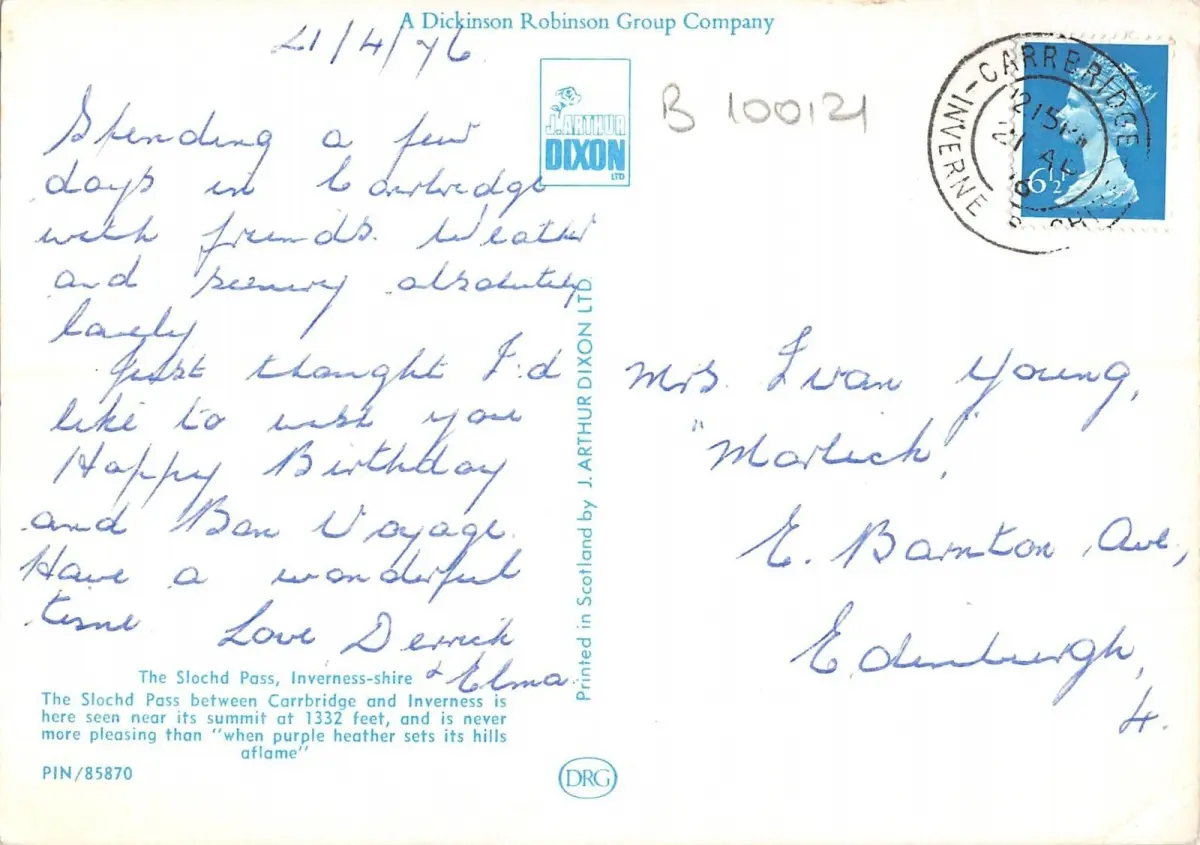 A Dickinson Robinson Group Company
21/4/76
J. ARTHUR
DIXON
LTD
B 100121
CARRBRIDGE
INVERNE
12 15 PM
21 AP
6½
Spending a few
days in Carrbridge
with friends. Weather
and scenery absolutely
lovely
Just thought I'd
like to wish you
Happy Birthday
and Bon Voyage.
Have a wonderful
time. Love Derrick
& Elma.
Printed in Scotland by J. ARTHUR DIXON LTD.
Mrs. Ivan Young,
E. Barnton Ave,
Edinburgh,
4.
The Slochd Pass, Inverness-shire
The Slochd Pass between Carrbridge and Inverness is
here seen near its summit at 1332 feet, and is never
more pleasing than "when purple heather sets its hills
aflame"
PIN/85870
DRG